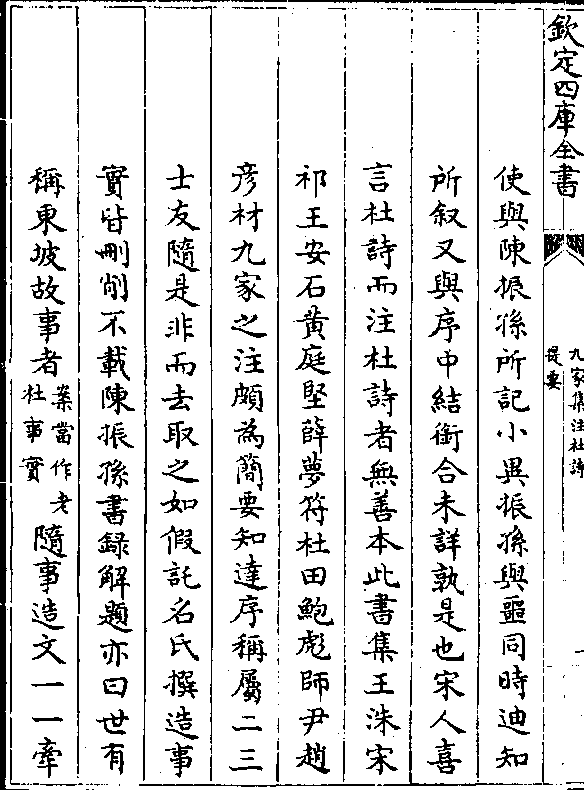 欽定四庫全書
九家集注杜詩
提要
使與陳振孫所記小異振孫與噩同時迪知
所叙又與序中結銜合未詳孰是也宋人喜
言杜詩而注杜詩者無善本此書集王洙宋
祁王安石黄庭堅薛夢符杜田鮑彪師尹趙
彦材九家之注頗為簡要知達序稱屬二三
士友隨是非而去取之如假託名氏撰造事
實皆刪削不載陳振孫書録解題亦曰世有
稱東坡故事者案當作老杜事實隨事造文一一牽